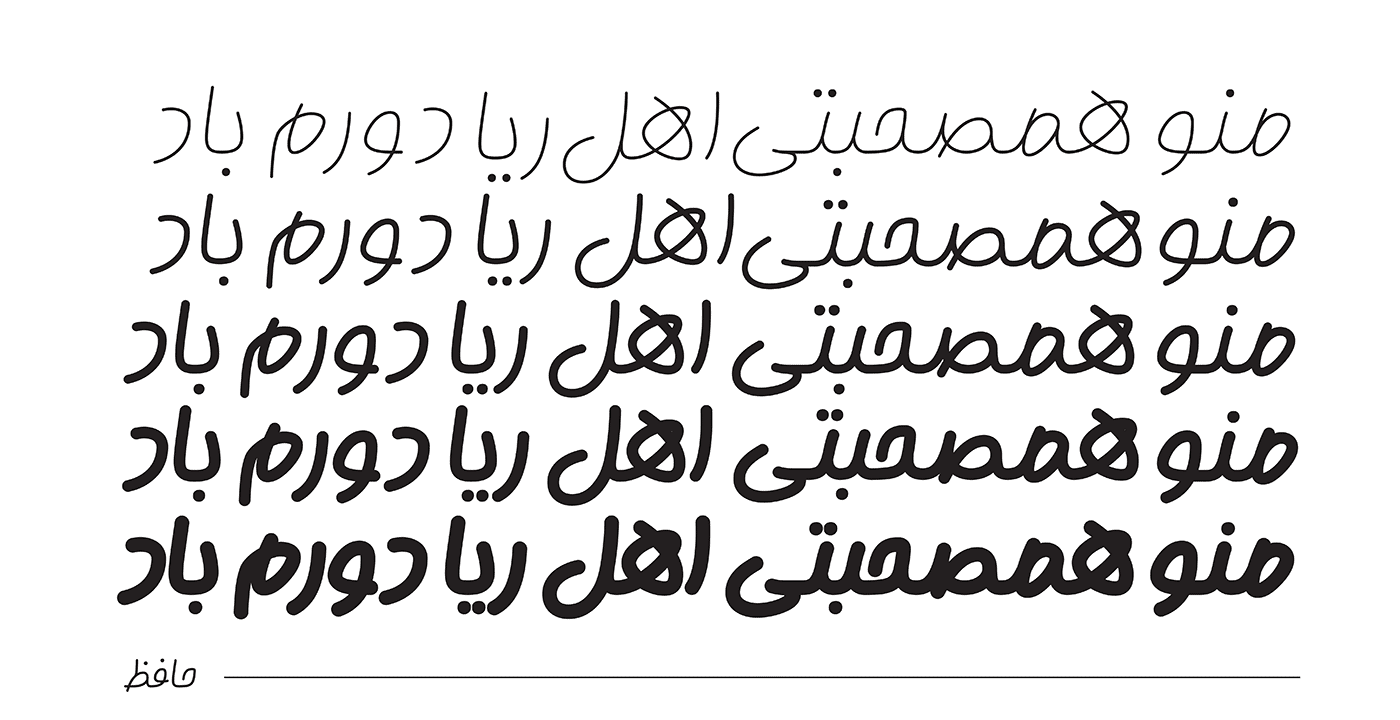 منو همصحبتی اهل ریا دورم باد
منو همصحبتی اهل ریا دورم باد
منو همصحبتی اهل ریا دورم باد
منو همصحبتی اهل ریا دورم باد
منو همصحبتی اهل ریا دورم باد
حافظ